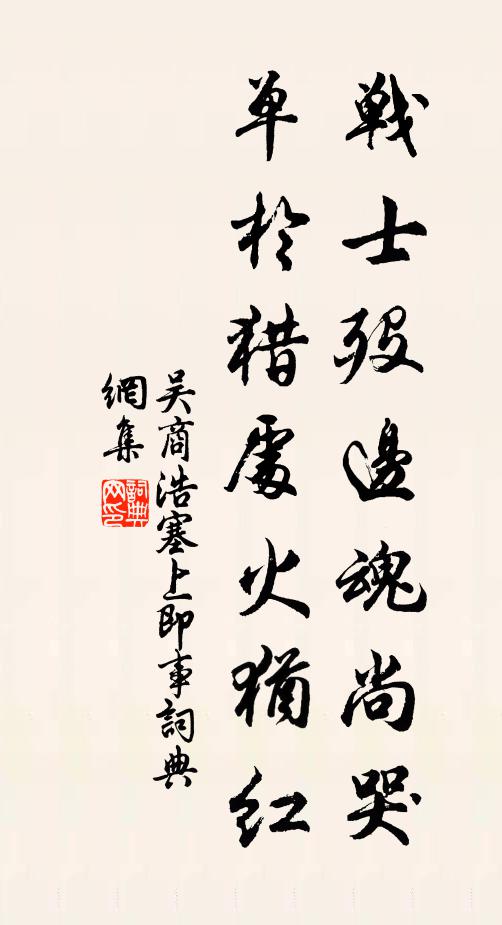 戰士歿邊魂尚哭
单於猎處火猶红
吴商浩塞上即事詞典
網集
詞典
网印